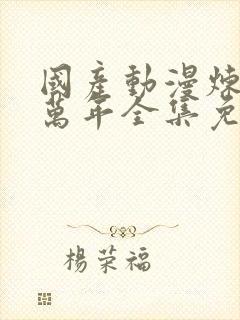 國產動漫煉
萬年全集免
楊荣福